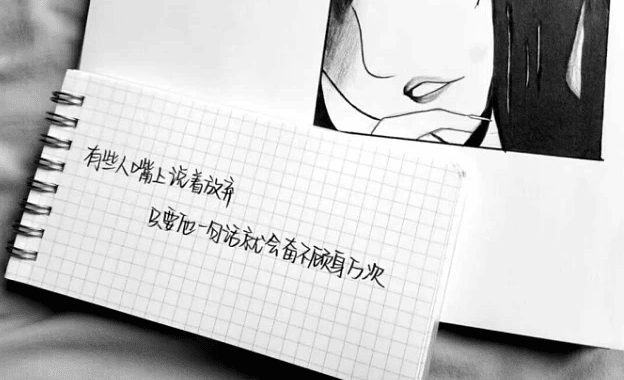 有些人嘴上说着放弃
只要他一句话就会奋不顾身万次